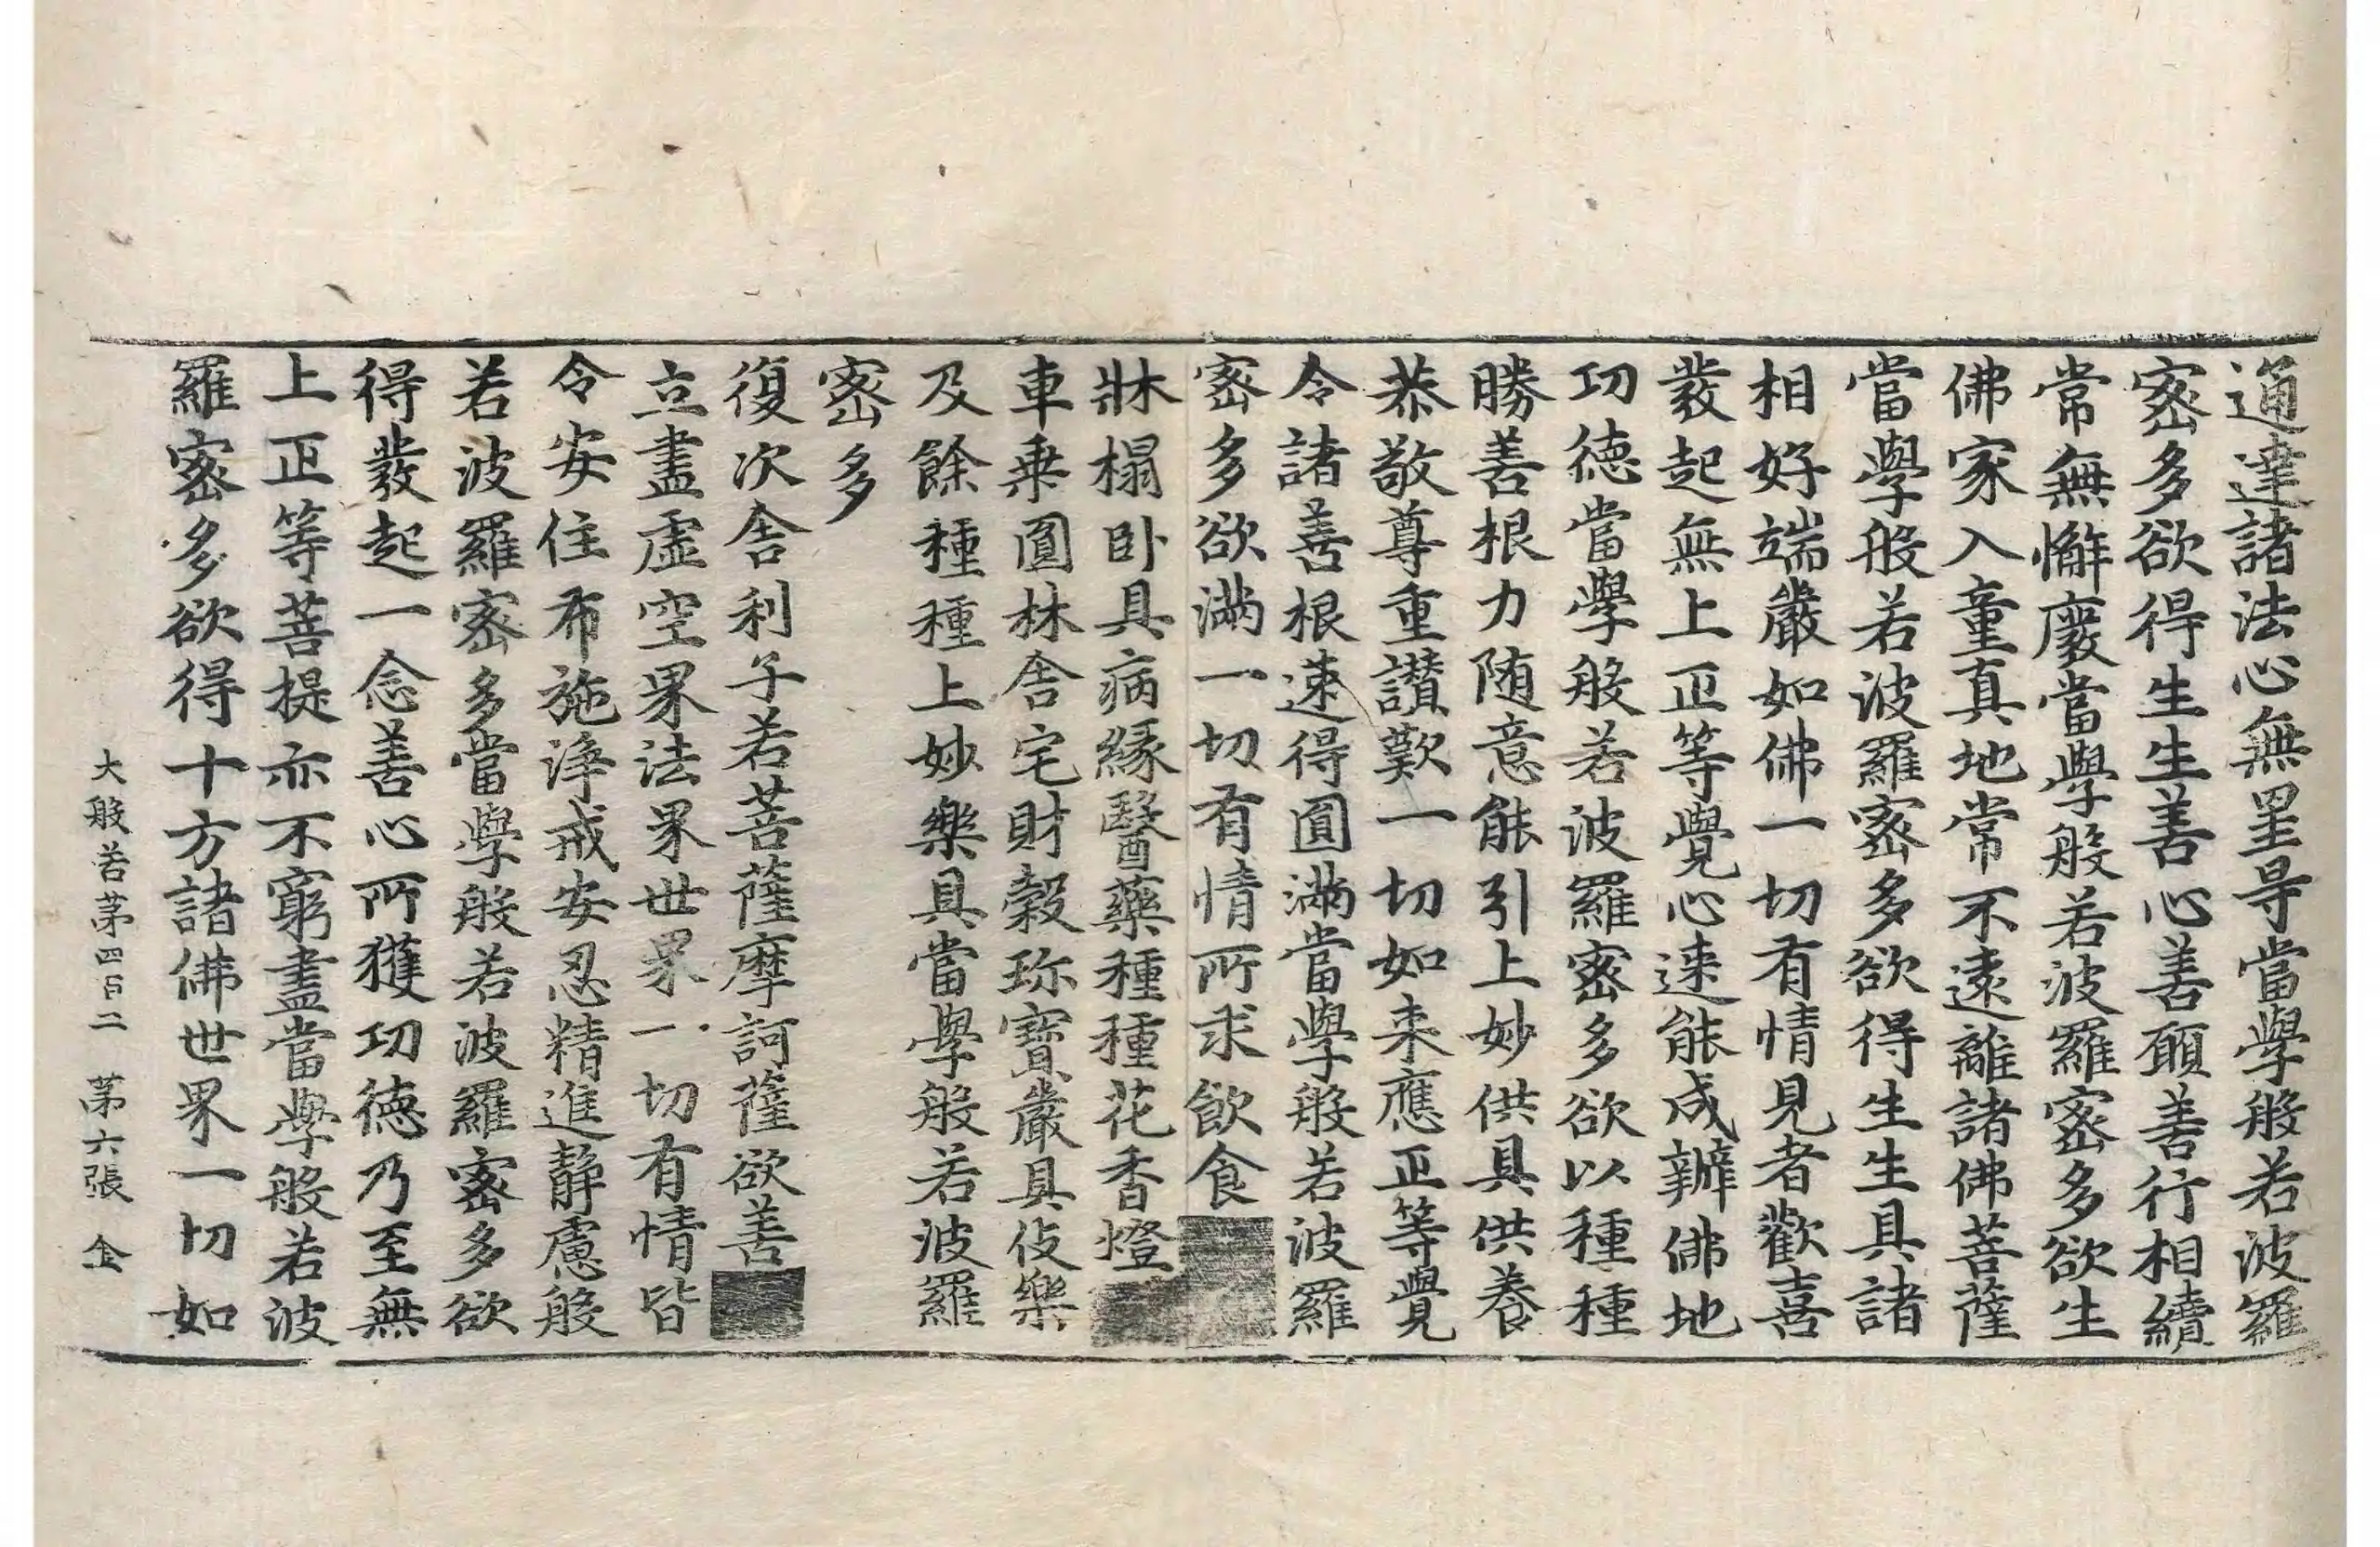 通達諸法心無罣㝵當學般若波羅
宻多欲得生生善心善願善行相續
常無懈廢當學般若波羅宻多欲生
佛家入童真地常不遠離諸佛菩薩
當學般若波羅宻多欲得生生具諸
相好端嚴如佛一切有情見者歡喜
發起無上正等覺心速能成辦佛地
功德當學般若波羅宻多欲以種種
勝善根力随意能引上妙供具供養
恭敬尊重讚歎一切如来應正等覺
令諸善根速得圓滿當學般若波羅
宻多欲滿一切有情所求飲食
牀榻卧具病緣醫藥種種花香燈
車乗園林舍宅財穀珎寶嚴具伎樂
及餘種種上妙樂具當學般若波羅
宻多
復次舍利子若菩薩摩訶薩欲善
立盡虛空界法界世界一切有情皆
令安住布施淨戒安忍精進靜慮般
若波羅宻多當學般若波羅宻多欲
得發起一念善心所獲功德乃至無
上正等菩提亦不窮盡當學般若波
羅宻多欲得十方諸佛世界一切如
大般若苐四百二 苐六張 金